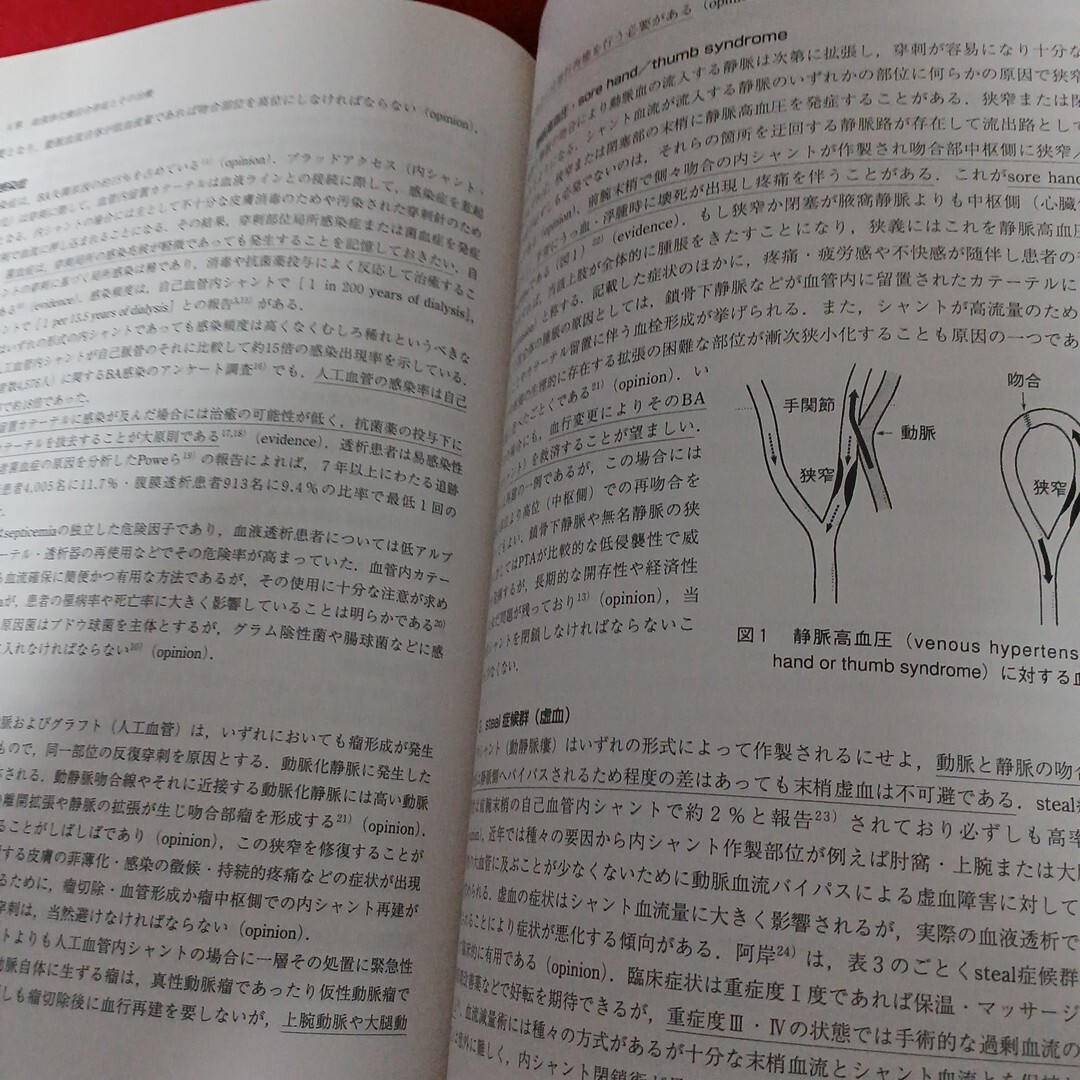 であれば吻合部位を高位にしなければならない（opinion）．
感染症
を占めている（opinion）．ブラッドアクセス（内シャント・
血管内留置カテーテルは血液ラインとの接続に際して，感染症を惹起
内シャントの場合には主として不十分な皮膚消毒のためや汚染された穿刺針のため
に押し込まれることになる．その結果，穿刺部位局所感染症または菌血症を発症
であっても発生することを記憶しておきたい．自
に基づく局所感染は稀であり，消毒や抗菌薬投与によく反応して治癒するこ
（evidence）．感染頻度は，自己血管内シャントで［1 in 200 years of dialysis］，
ントで［1 per 15.5 years of dialysis］との報告がある．
いずれの形式の内シャントであっても感染頻度は高くなくむしろ稀れというべきな
人工血管内シャントが自己血管のそれに比較して約15倍の感染出現率を示している．
4,576人）に関するBA感染のアンケート調査16）でも，人工血管の感染率は自己
留置カテーテルに感染が及んだ場合には治癒の可能性が低く，抗菌薬の投与下に
カテーテルを抜去することが大原則である17,18）（evidence）．透析患者は易感染性
菌血症の原因を分析したPoweら19）の報告によれば，7年以上にわたる追跡
患者4,005名に11.7％・腹膜透析患者913名に9.4％の比率で最低1回の
はsepticemiaの独立した危険因子であり，血液透析患者については低アルブ
ーテル・透析器の再使用などでその危険率が高まっていた．血管内カテー
血流確保に簡便かつ有用な方法であるが，その使用に十分な注意が求め
が，患者の罹病率や死亡率に大きく影響していることは明らかである20）
原因菌はブドウ球菌を主体とするが，グラム陰性菌や腸球菌などに感
に入れなければならない（opinion）．
脈およびグラフト（人工血管）は，いずれにおいても瘤形成が発生
もので，同一部位の反復穿刺を原因とする．動脈化静脈に発生した
される．動静脈吻合線やそれに近接する動脈化静脈には高い動脈
離開拡張や静脈の拡張が生じ吻合部瘤を形成する21）（opinion）．
ることがしばしばであり（opinion），この狭窄を修復することが
する皮膚の菲薄化・感染の徴候・持続的疼痛などの症状が出現
るために，瘤切除・血管形成か瘤中枢側での内シャント再建が
穿刺は，当然避けなければならない（opinion）．
トよりも人工血管内シャントの場合に一層その処置に緊急性
動脈自体に生ずる瘤は，真性動脈瘤であったり仮性動脈瘤で
しも瘤切除後に血行再建を要しないが，上腕動脈や大腿動
を行う必要がある
sore hand／thumb syndrome
により動脈血の流入する静脈は次第に拡張し，穿刺が容易になり十分な
シャント血流が流入する静脈のいずれかの部位に何らかの原因で狭窄
狭窄または閉塞部の末梢に静脈高血圧を発症することがある．狭窄または閉
も必発でないのは，それらの箇所を迂回する静脈路が存在して流出路として
（opinion）．前腕末梢で側々吻合の内シャントが作製され吻合部中枢側に狭窄／
手指にうっ血・浮腫時に壊死が出現し疼痛を伴うことがある．これがsore hand
である（図1）22）（evidence）．もし狭窄か閉塞が腋窩静脈よりも中枢側（心臓
ば，当該上肢が全体的に腫脹をきたすことになり，狭義にはこれを静脈高血圧
と称する．記載した症状のほかに，疼痛・疲労感や不快感が随伴し患者の
全体の腫脹の原因としては，鎖骨下静脈などが血管内に留置されたカテーテルに
やカテーテル留置に伴う血栓形成が挙げられる．また，シャントが高流量のため
の生理的に存在する拡張の困難な部位が漸次狭小化することも原因の一つであ
べたごとくである21）（opinion）．い
場合にも，血行変更によりそのBA
シャント）を救済することが望ましい．
の一例であるが，この場合には
位より高位（中枢側）での再吻合を
てもよい．鎖骨下静脈や無名静脈の狭
してはPTAが比較的な低侵襲性で威
を発揮するが，長期的な開存性や経済性
問題が残っており13）（opinion），当
シャントを閉鎖しなければならないこ
なくない．
手関節
動脈
狭窄
吻合
狭窄
図1　静脈高血圧（venous hypertens
hand or thumb syndrome）に対する血
steal 症候群（虚血）
シャント（動静脈瘻）はいずれの形式によって作製されるにせよ，動脈と静脈の吻合
静脈側へバイパスされるため程度の差はあっても末梢虚血は不可避である．steal
は前腕末梢の自己血管内シャントで約2％と報告23）されており必ずしも高率
近年では種々の要因から内シャント作製部位が例えば肘窩・上腕または大腿
の大血管に及ぶことが少なくないために動脈血流バイパスによる虚血障害に対して
められる．虚血の症状はシャント血流量に大きく影響されるが，実際の血液透析で
ることにより症状が悪化する傾向がある．阿岸24）は，表3のごとくsteal症候群
臨床的に有用である（opinion）．臨床症状は重症度Ⅰ度であれば保温・マッサージ
改善薬などで好転を期待できるが，重症度Ⅲ・Ⅳの状態では手術的な過剰血流の
．血流減量術には種々の方式があるが十分な末梢血流とシャント血流とを
は意外に難しく，内シャント閉鎖術が